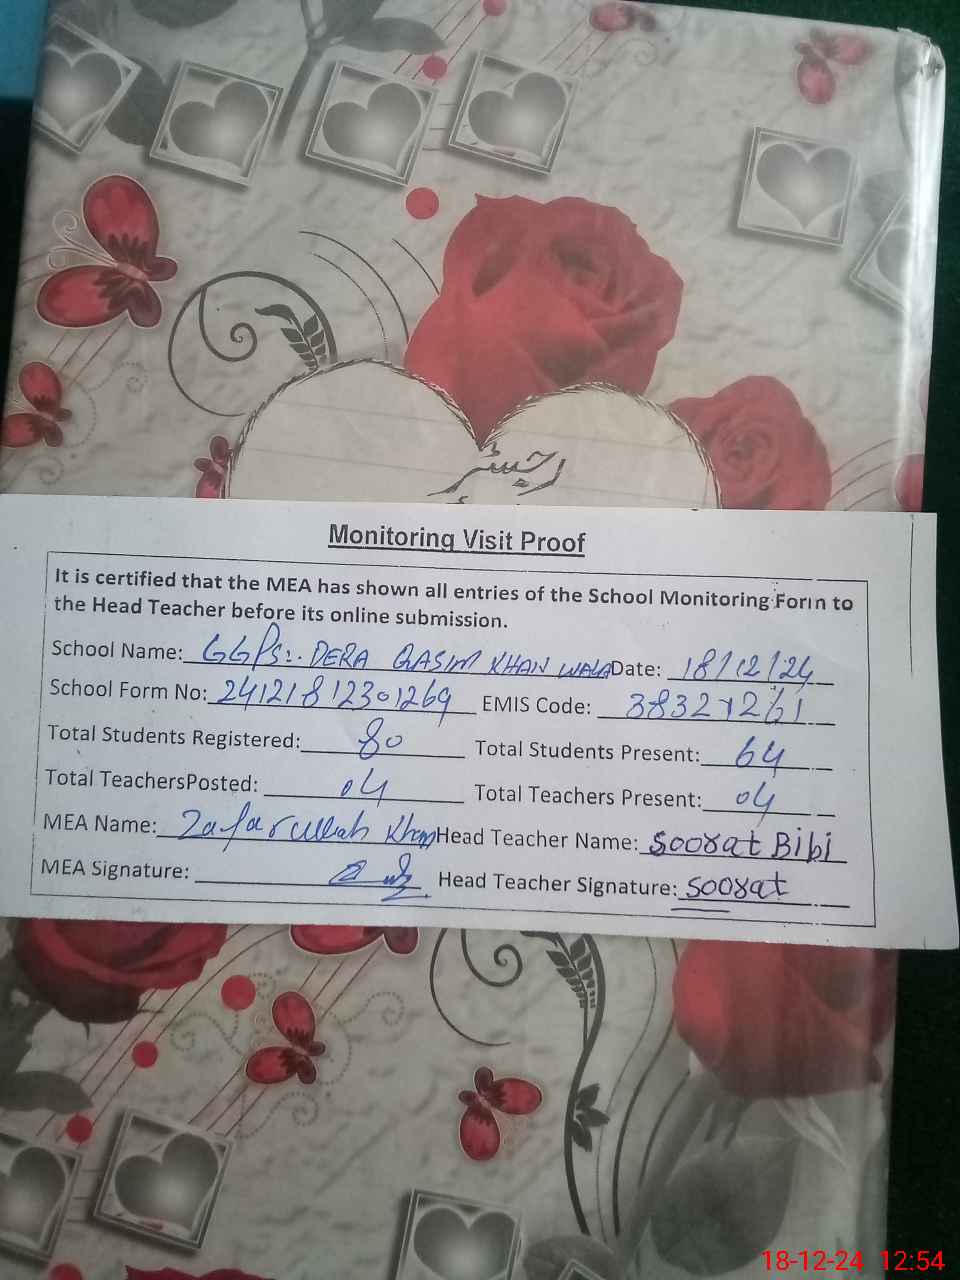 رجسٹر
Monitoring Visit Proof
It is certified that the MEA has shown all entries of the School Monitoring Form to
the Head Teacher before its online submission.
School Name: GGPS:. DERA QASIM KHAN WALA Date: 18/12/24
School Form No: 2412181230 1269 EMIS Code: 38327261
Total Students Registered: 80 Total Students Present: 64
Total TeachersPosted: 04 Total Teachers Present: 04
MEA Name: Zafarullah Khan Head Teacher Name: Soorat Bibi
MEA Signature: Head Teacher Signature: Soorat
18-12-24 12:54